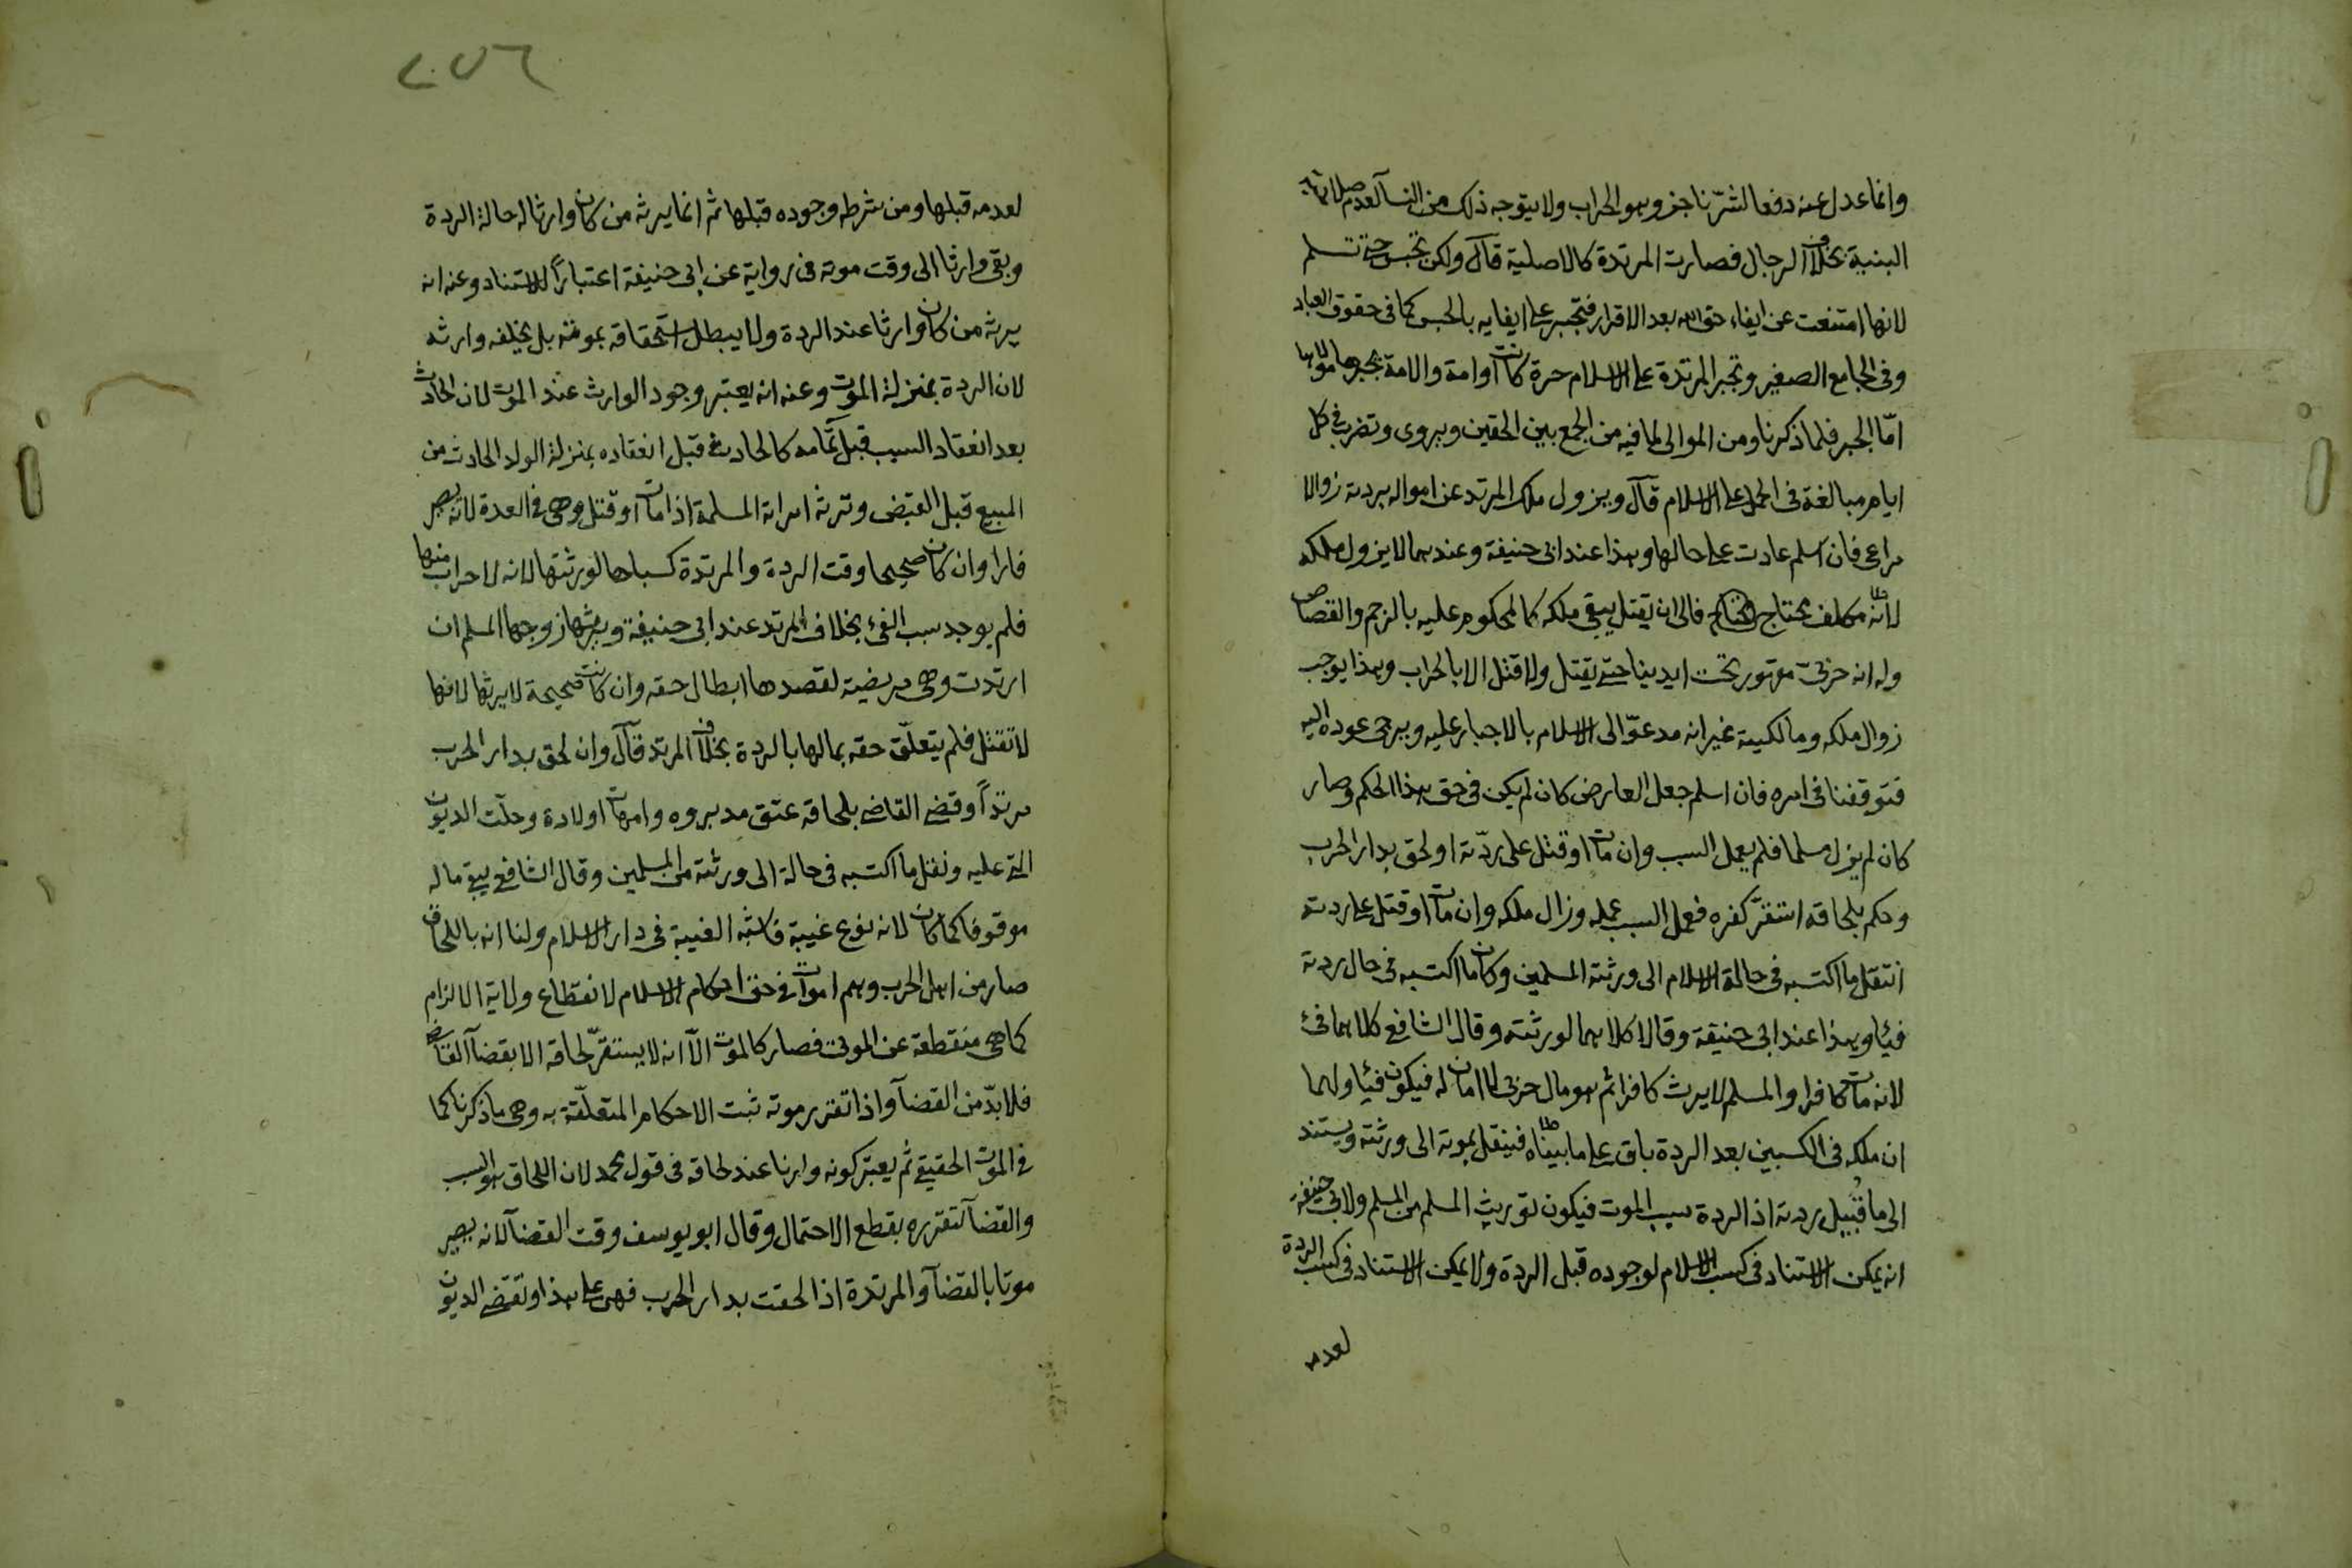 وانما عدل عنه دفعا لشر ناجز وهو الحراب ولا يتوجه ذلك من النسآ لعدم صلاحية
البنية بخلاف الرجال فصارت المرتدة كالاصلية قال ولكن تحبس حتى تسلم
لانها امتنعت عن ايفاء حق الله بعد الاقرار فتجبر على ايفايه بالحبس كما فى حقوق العباد
وفى الجامع الصغير وتجبر المرتدة على الاسلام حرة كانت او امة والامة يجبرها مولاها
امّا الجبر فلما ذكرنا ومن المولى لما فيه من الجمع بين الحقين ويروى وتضرب فى كل
ايام مبالغة فى الحمل على الاسلام قال ويزول ملك المرتد عن امواله بردته زوالا
مراعى فان اسلم عادت على حالها وهذا عند ابى حنيفة وعندهما لا يزول ملكه
لانه مكلف محتاج فالى ان يقتل يبقى ملكه كالمحكوم عليه بالرجم والقصاص
وله انه حربىّ مقهور تحت ايدينا حتى يقتل ولا قتل الا بالحراب وهذا يوجب
زوال ملكه ومالكيته غير انه مدعوّ الى الاسلام بالاجبار عليه ويرجى عوده اليه
فتوقفنا فى امره فان اسلم جعل العارض كان لم يكن فى حق هذا الحكم وصار
كان لم يزل مسلما فلم يعمل السبب وان مات او قتل على ردّته او لحق بدار الحرب
وحكم بلحاقه استقرّ كفره فعمل السبب عمله وزال ملكه وان مات او قتل على ردته
انتقل ما اكتسبه فى حالة الاسلام الى ورثته المسلمين وكان ما اكتسبه فى حال ردته
فيئا وهذا عند ابى حنيفة وقالا كلاهما لورثته وقال الشافعى كلاهما فئ
لانه مات كافرا والمسلم لا يرث كافرا ثم هو مال حربى لا امان له فيكون فيئا ولهما
ان ملكه فى الكسبين بعد الردة باق على ما بيناه فينقل بموته الى ورثته ويستند
الى ما قُبيل ردته اذ الردة سبب الموت فيكون توريث المسلم من المسلم ولابى حنيفة
انه يمكن الاستناد فى كسب الاسلام لوجوده قبل الردة ولا يمكن الاستناد فى كسب الردة
لعدمه
٢٠٥٦
لعدمه قبلها ومن شرطه وجوده قبلها ثم انما يرثه من كان وارثا له حالة الردة
وبقى وارثا الى وقت موته فى رواية عن ابى حنيفة اعتباراً للاستناد وعنه انه
يرثه من كان وارثا عند الردة ولا يبطل استحقاقه بموته بل يخلفه وارثه
لان الردة بمنزلة الموت وعنه انه يعتبر وجود الوارث عند الموت لان الحادث
بعد انعقاد السبب قبل تمامه كالحادث قبل انعقاده بمنزلة الولد الحادث من
المبيع قبل القبض وترثه امراته المسلمة اذا مات او قتل وهى فى العدة لانه يصير
فارا وان كان صحيحا وقت الردة والمرتدة كسباها لورثتها لانه لا حراب منها
فلم يوجد سبب الفئ بخلاف المرتد عند ابى حنيفة ويرثها زوجها المسلم ان
ارتدت وهى مريضة لقصدها ابطال حقه وان كانت صحيحة لا يرثها لانها
لا تقتل فلم يتعلّق حقه بمالها بالردة بخلاف المرتد قال وان لحق بدار الحرب
مرتداً وقضى القاضى بلحاقه عتق مدبروه وامهات اولاده وحلّت الديون
التى عليه ونقل ما اكتسبه فى حالة الى ورثته من المسلمين وقال الشافعى يبقى ماله
موقوفا كما كان لانه نوع غيبة فاشبه الغيبة فى دار الاسلام ولنا انه باللحاق
صار من اهل الحرب وهم اموات فى حق احكام الاسلام لانقطاع ولاية الالزام
كما هى منقطعة عن الموتى فصار كالموت الّا انه لا يستقرّ لحاقه الا بقضآ القاضى
فلا بدّ من القضآ واذا تقرر موته ثبت الاحكام المتعلّقة به وهى ما ذكرنا كما
فى الموت الحقيقى ثم يعتبر كونه وارثا عند لحاقه فى قول محمد لان اللحاق هو السبب
والقضآ لتقرره بقطع الاحتمال وقال ابو يوسف وقت القضآ لانه يصير
موتا بالقضآ والمرتدة اذا لحقت بدار الحرب فهى على هذا وتقضى الديون